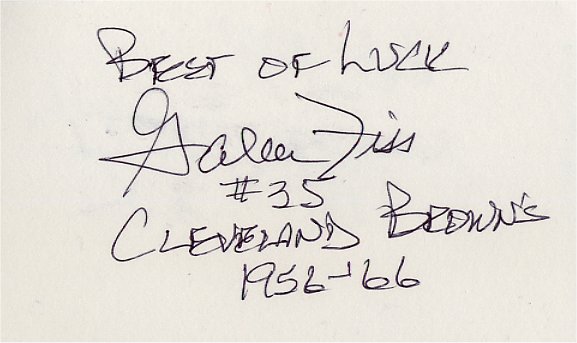 BEST OF LUCK
Galen Fiss
#35
CLEVELAND BROWN'S
1956-'66